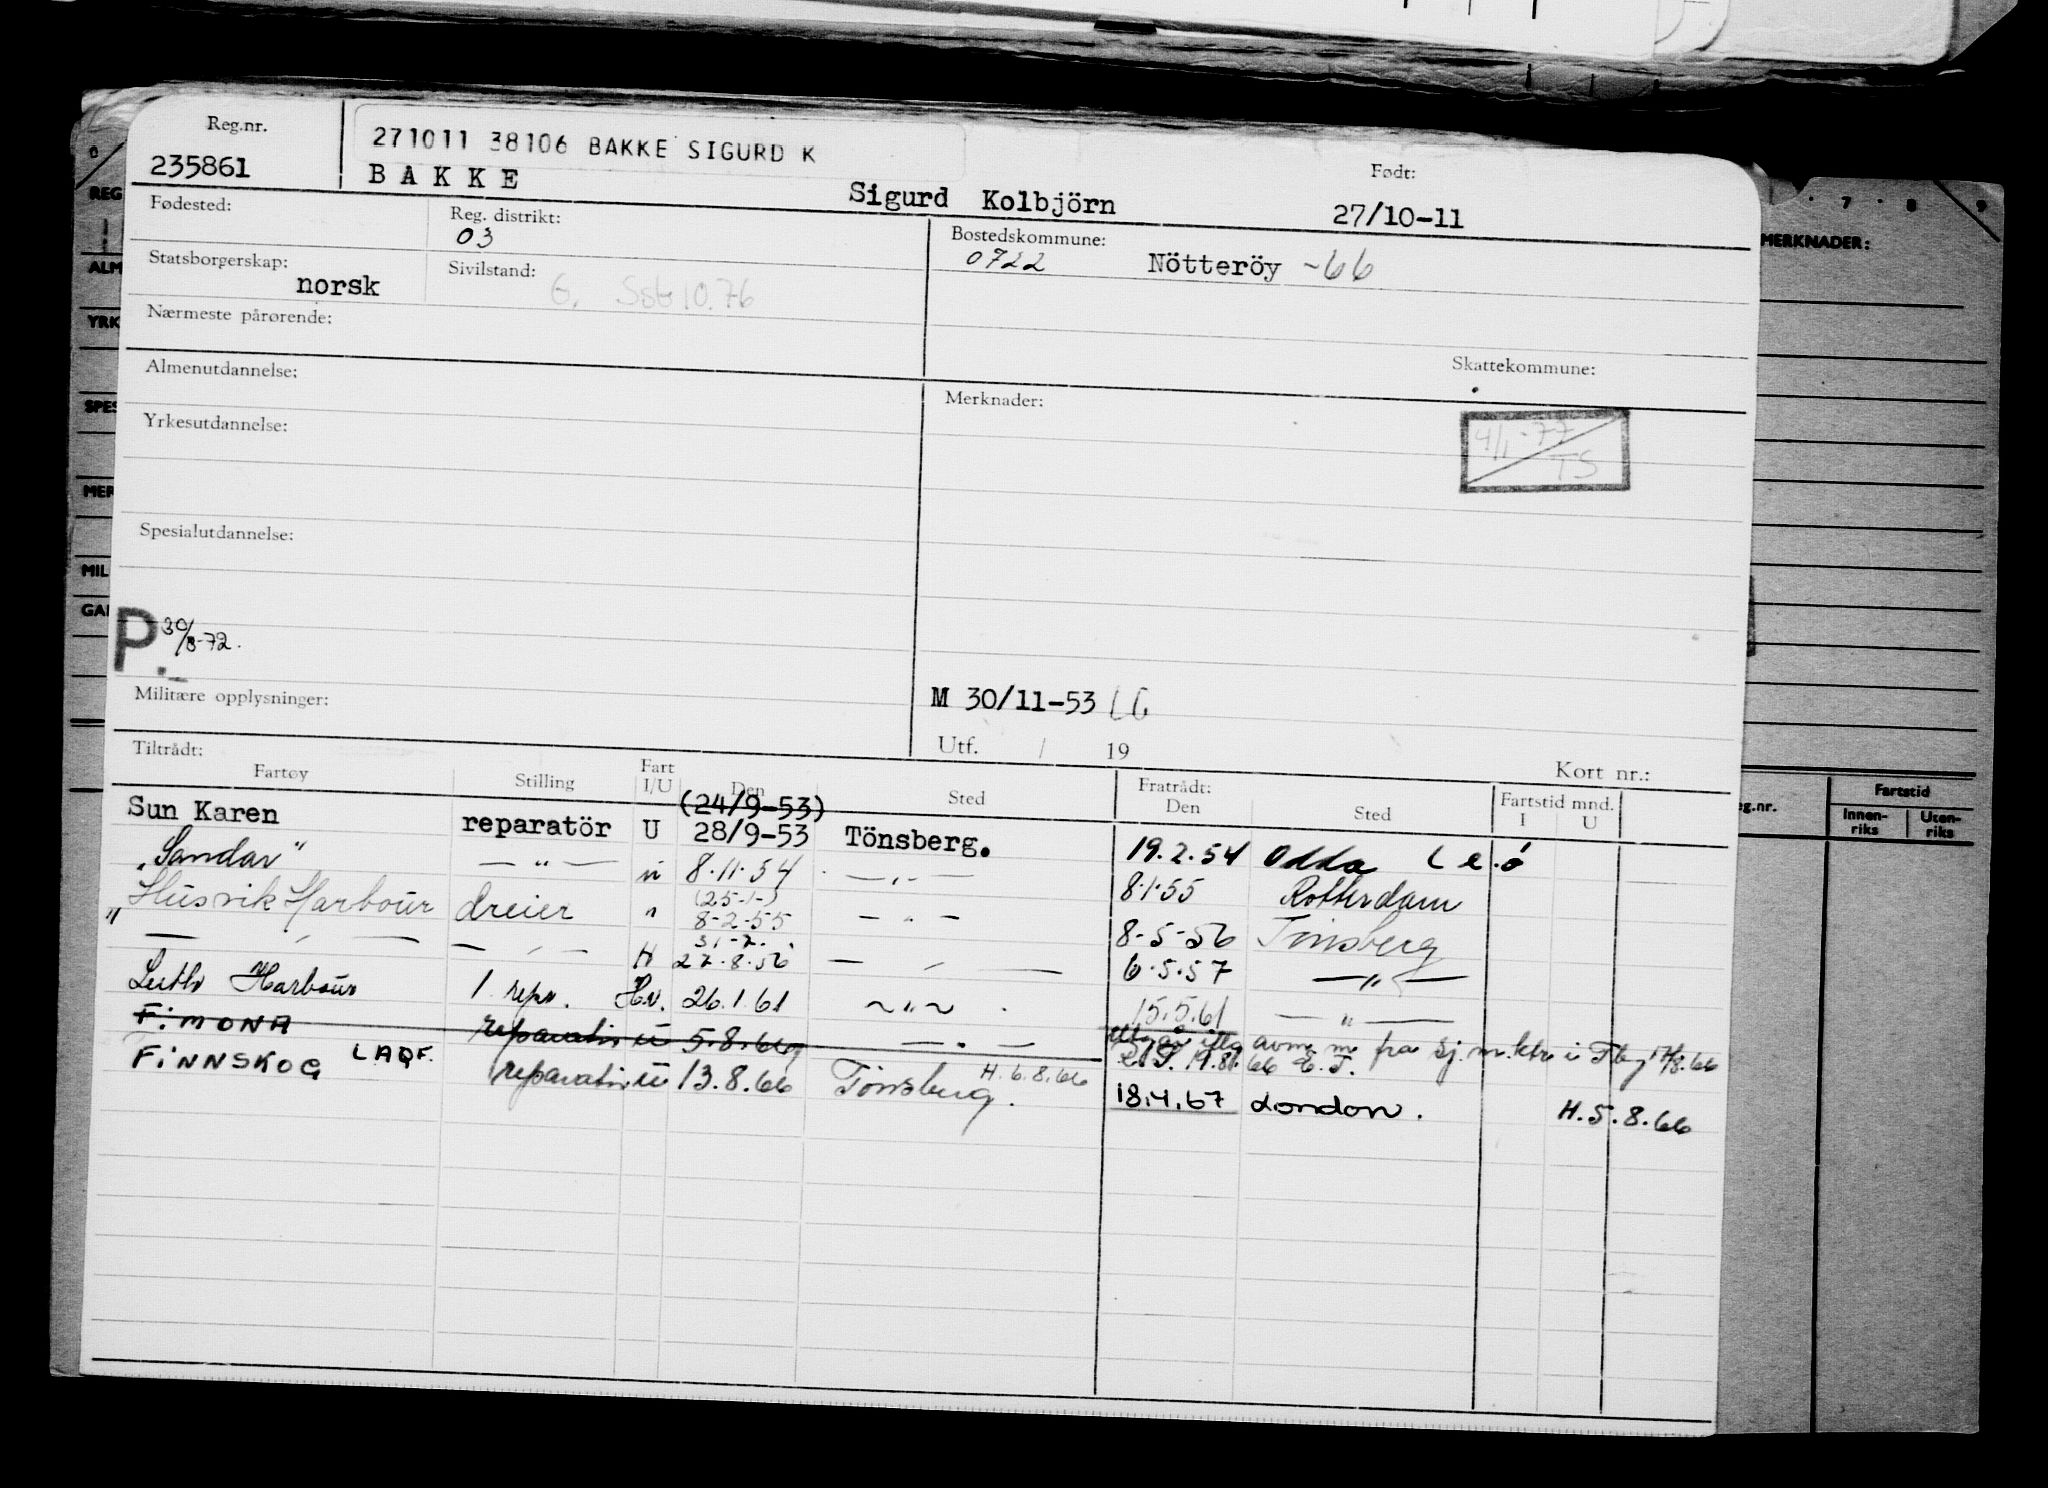 Reg.nr.
235861
271011 38106 BAKKE SIGURD K
BAKKE Sigurd Kolbjörn
Født:
27/10-11
Fødested:
Reg. distrikt:
03
Bostedskommune:
0722 Nötteröy -66
Statsborgerskap:
norsk
Sivilstand:
G. SSB 10.76
Nærmeste pårørende:
Skattekommune:
Almenutdannelse:
Merknader:
4/1-77
TS
Yrkesutdannelse:
Spesialutdannelse:
P. 30/8-72.
Militære opplysninger:
M 30/11-53 LG
Utf. / 19
Kort nr.:
Tiltrådt:
Fartøy Stilling Fart I/U Den Sted Fratrådt: Den Sted Fartstid mnd. I U
(24/9-53)
Sun Karen reparatör U 28/9-53 Tönsberg. 19.2.54 Odda
"Sandar" — " — " 8.11.54 — " — 8.1.55 Rotterdam
(25-1-)
"Husvik Harbour dreier " 8-2-55 — " — 8-5-56 Tönsberg
31-7-
— " — — " — H 27.8.56 — " — 6.5.57 — " —
Leith Harbour 1. repr. Hv. 26.1.61 ~ " ~ 15.5.61 — " —
FiMONA reparatör U 5.8.66 — " — fra sj.m.ktr i Tbg 17/8.66
FiNNSKOG LAQF. reparatör U 13.8.66 Tönsberg. H.6.8.66 18.4.67 London. H.5.8.66
REG
ALM
YRK
SPES
MER
MIL
7 . 8 9
MERKNADER:
eg.nr.
Fartstid
Innen-riks
Uten-riks